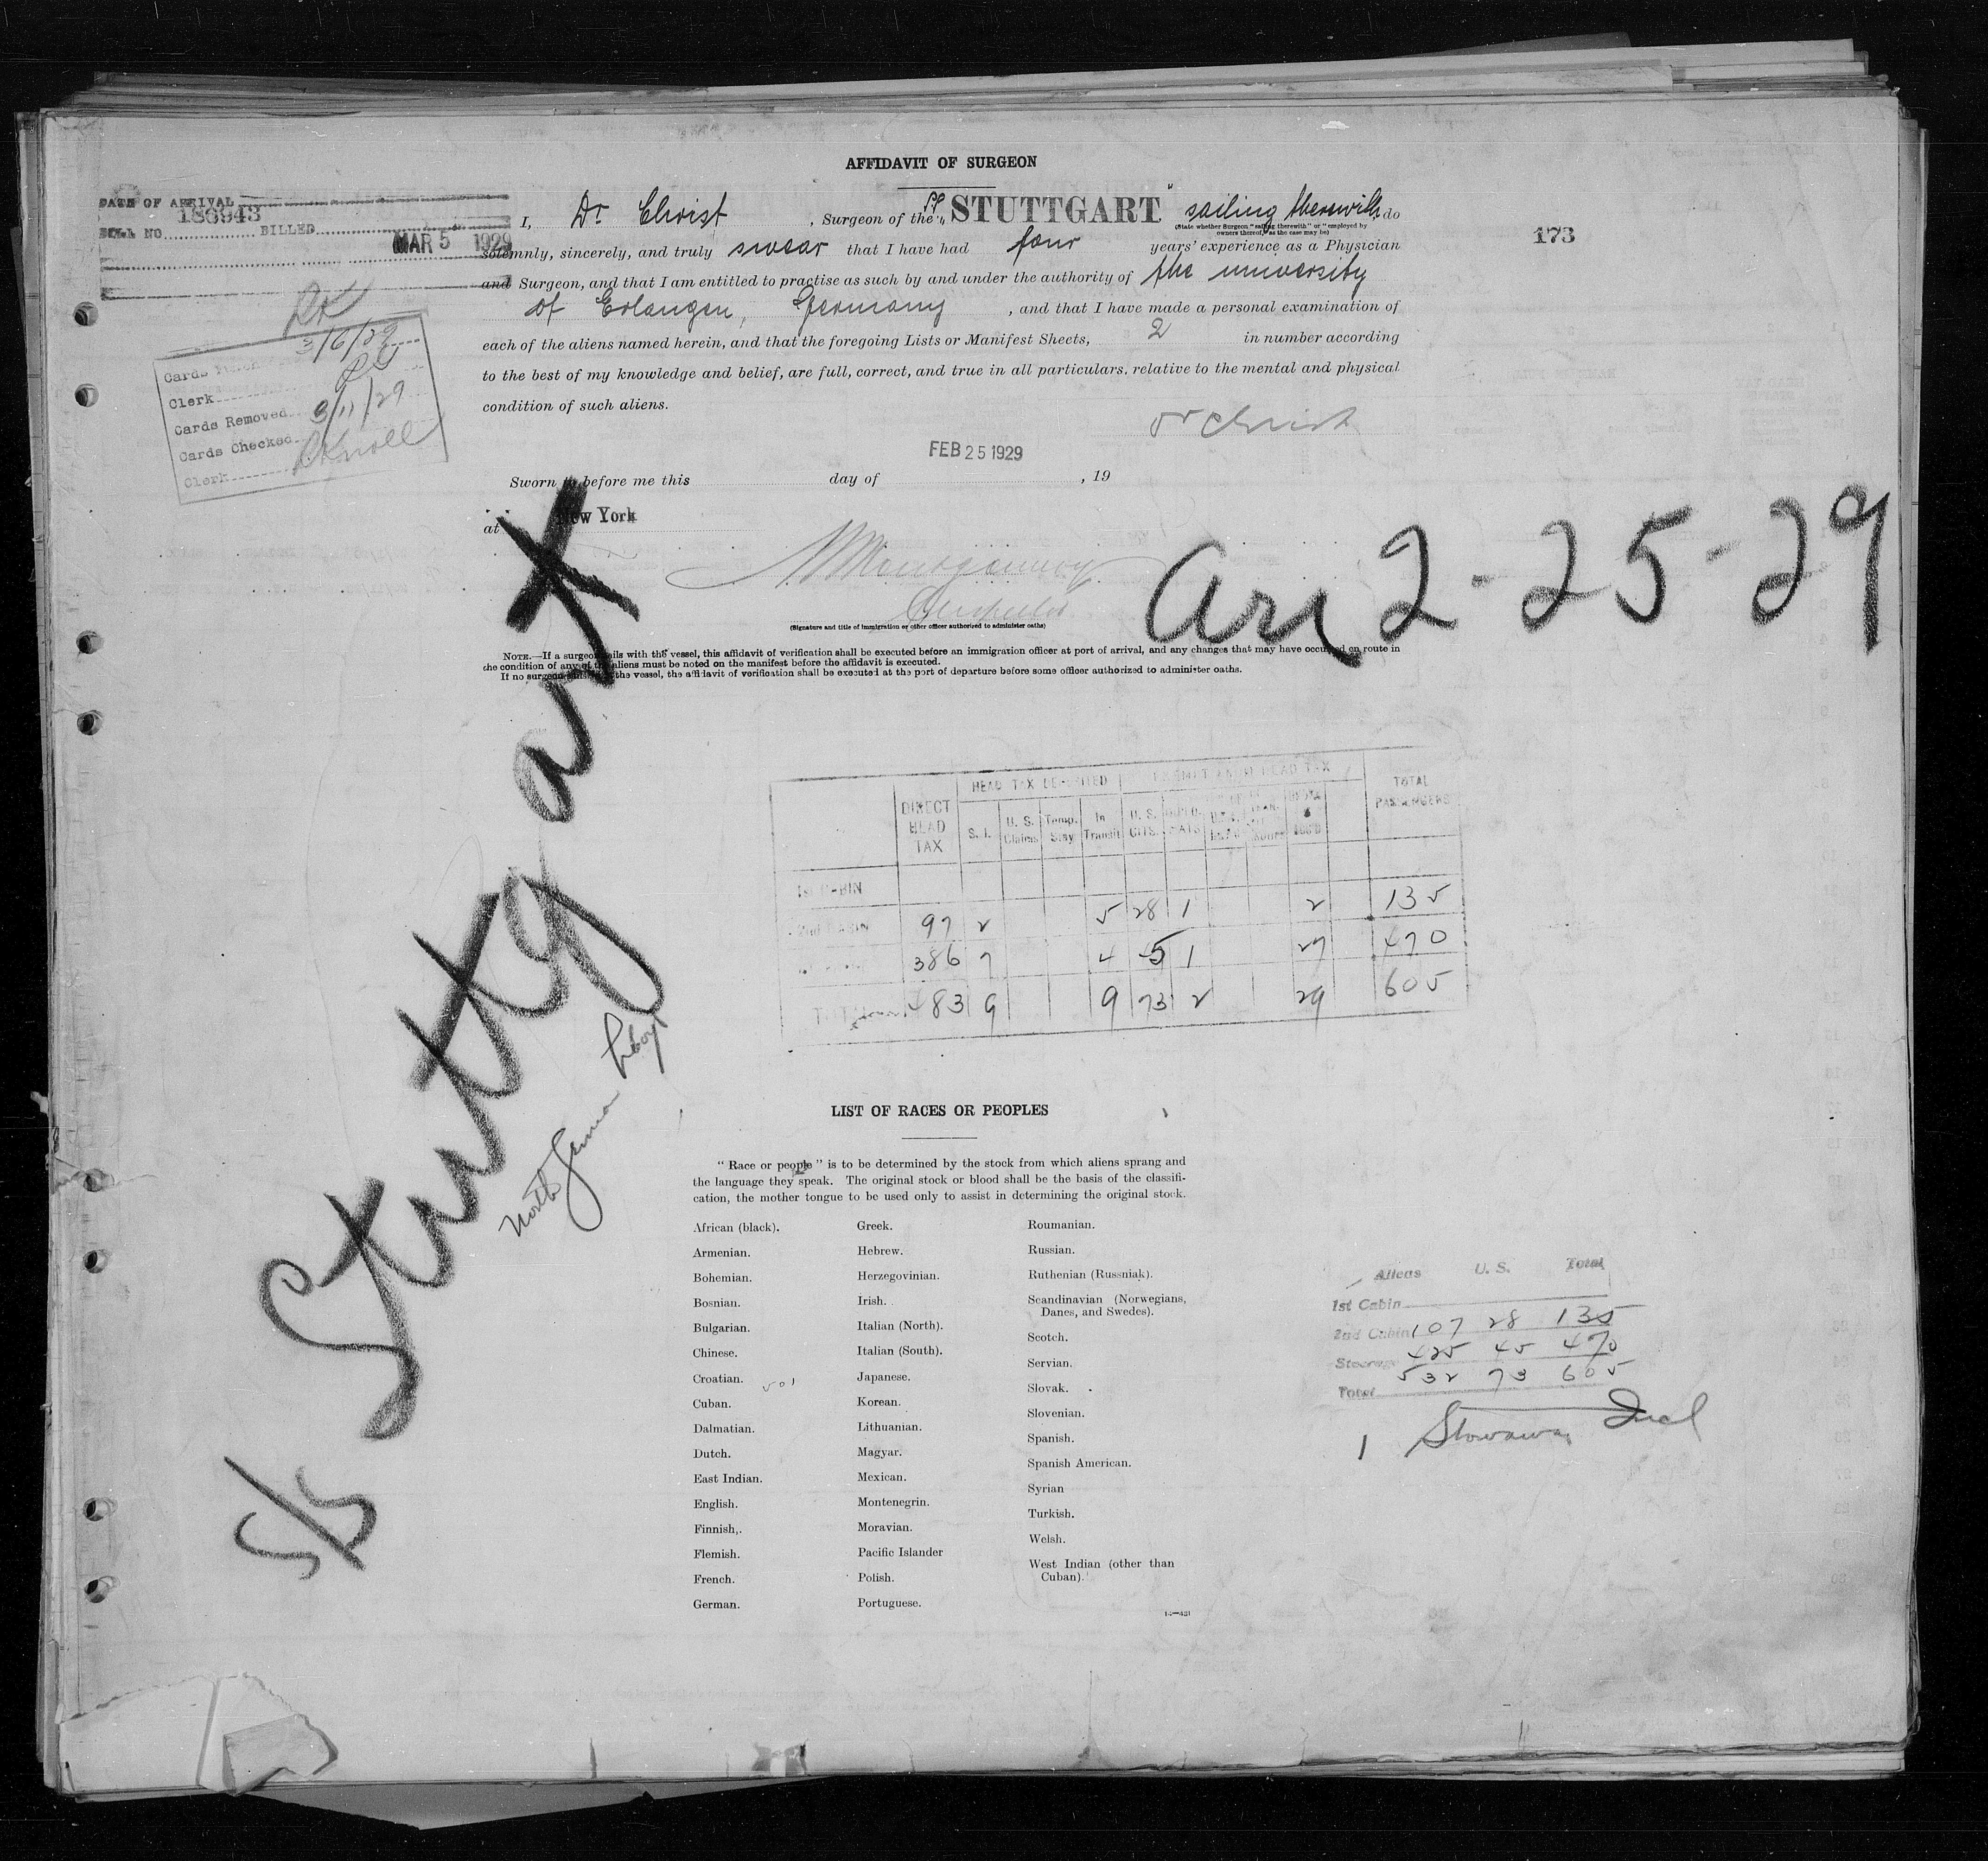 AFFIDAVIT OF SURGEON
DATE OF ARRIVAL
186943
BILL NO. BILLED
MAR 5 1929
I, Dr Christ, Surgeon of the "STUTTGART" sailing therewith, do
(State whether Surgeon "sailing therewith" or "employed by
owners thereof," as the case may be)
173
solemnly, sincerely, and truly swear that I have had four years' experience as a Physician
and Surgeon, and that I am entitled to practise as such by and under the authority of the university
of Erlangen, Germany, and that I have made a personal examination of
each of the aliens named herein, and that the foregoing Lists or Manifest Sheets, 2 in number according
to the best of my knowledge and belief, are full, correct, and true in all particulars, relative to the mental and physical
condition of such aliens.
3/6/29
Clerk
Cards Removed 3/11/29
Cards Checked
Clerk
Dr Christ
FEB 25 1929
Sworn to before me this day of , 19
at New York
Arr 2-25-29
(Signature and title of immigration or other officer authorized to administer oaths)
NOTE.—If a surgeon sails with the vessel, this affidavit of verification shall be executed before an immigration officer at port of arrival, and any changes that may have occurred en route in
the condition of any of the aliens must be noted on the manifest before the affidavit is executed.
If no surgeon the vessel, the affidavit of verification shall be executed at the port of departure before some officer authorized to administer oaths.
S/S Stuttgart
North German Lloyd
HEAD TAX
DIRECT HEAD TAX S. I. U. S. Claims Temp. Stay In Transit U. S. CITS. TOTAL PASSENGERS
1st CABIN
2nd CABIN 97 2 5 28 1 2 135
386 7 4 45 1 27 470
TOTAL 483 9 9 73 2 29 605
LIST OF RACES OR PEOPLES
"Race or people" is to be determined by the stock from which aliens sprang and
the language they speak. The original stock or blood shall be the basis of the classifi-
cation, the mother tongue to be used only to assist in determining the original stock.
African (black).
Armenian.
Bohemian.
Bosnian.
Bulgarian.
Chinese.
Croatian.
501
Cuban.
Dalmatian.
Dutch.
East Indian.
English.
Finnish.
Flemish.
French.
German.
Greek.
Hebrew.
Herzegovinian.
Irish.
Italian (North).
Italian (South).
Japanese.
Korean.
Lithuanian.
Magyar.
Mexican.
Montenegrin.
Moravian.
Pacific Islander
Polish.
Portuguese.
Roumanian.
Russian.
Ruthenian (Russniak).
Scandinavian (Norwegians,
Danes, and Swedes).
Scotch.
Servian.
Slovak.
Slovenian.
Spanish.
Spanish American.
Syrian
Turkish.
Welsh.
West Indian (other than
Cuban).
14—431
Aliens U. S. Total
1st Cabin
2nd Cabin 107 28 135
Steerage 425 45 470
Total 532 73 605
1 Stowaway Incl